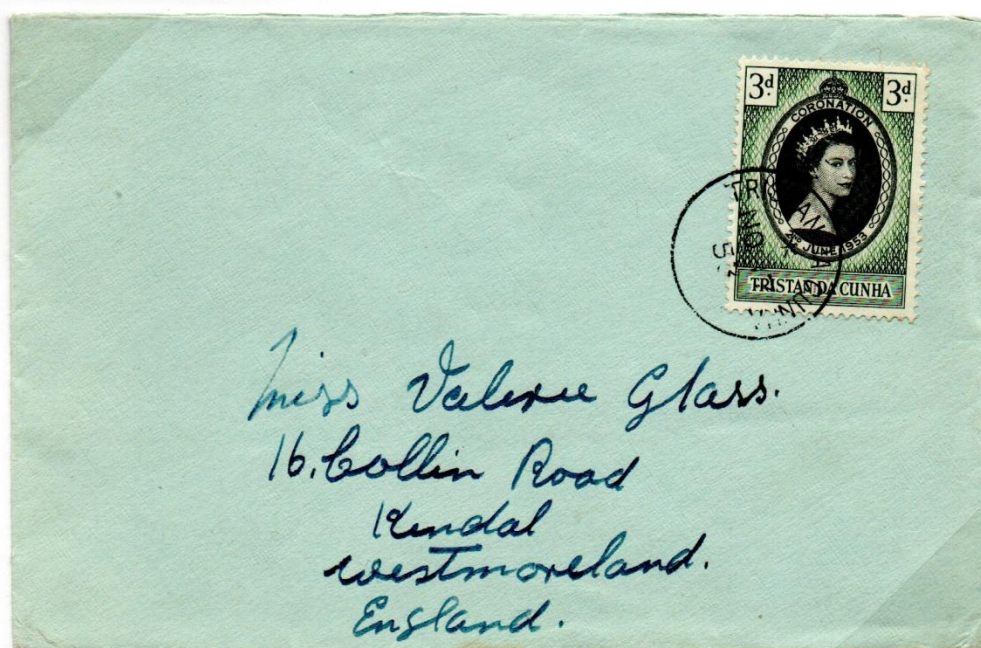 3d. 3d.
CORONATION
2ND JUNE 1953
TRISTAN DA CUNHA
Miss Valerie Glass.
16. Collin Road
Kendal
Westmoreland.
England.